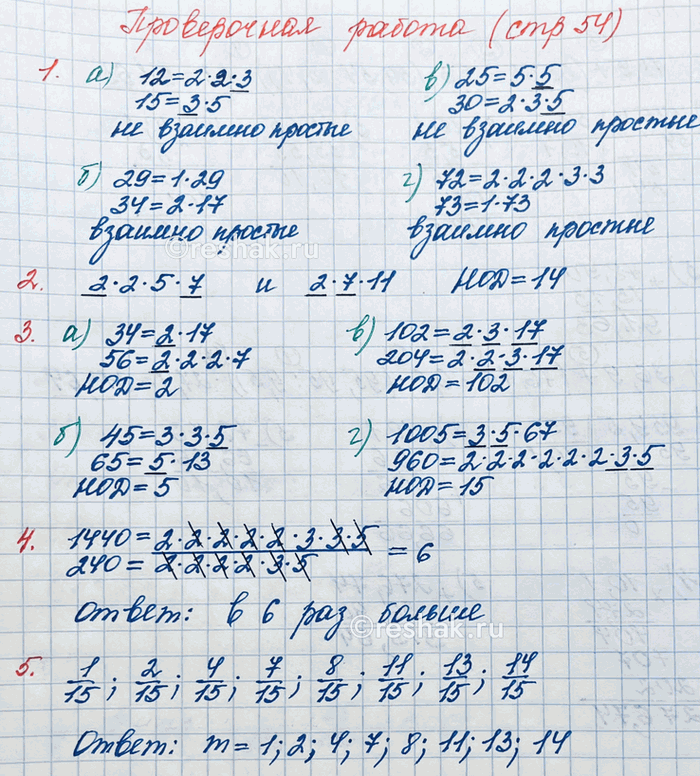 Проверочная работа (стр 54)
1. а) 12=2·2·3
15=3·5
не взаимно простые
в) 25=5·5
30=2·3·5
не взаимно простые
б) 29=1·29
34=2·17
взаимно простые
г) 72=2·2·2·3·3
73=1·73
взаимно простые
©reshak.ru
2. 2·2·5·7 и 2·7·11 НОД=14
3. а) 34=2·17
56=2·2·2·7
НОД=2
в) 102=2·3·17
204=2·2·3·17
НОД=102
б) 45=3·3·5
65=5·13
НОД=5
г) 1005=3·5·67
960=2·2·2·2·2·2·3·5
НОД=15
4. 1440=2·2·2·2·2·3·3·5
240=2·2·2·2·3·5
=6
Ответ: в 6 раз больше
©reshak.ru
5. 1/15; 2/15; 4/15; 7/15; 8/15; 11/15; 13/15; 14/15
Ответ: m=1; 2; 4; 7; 8; 11; 13; 14